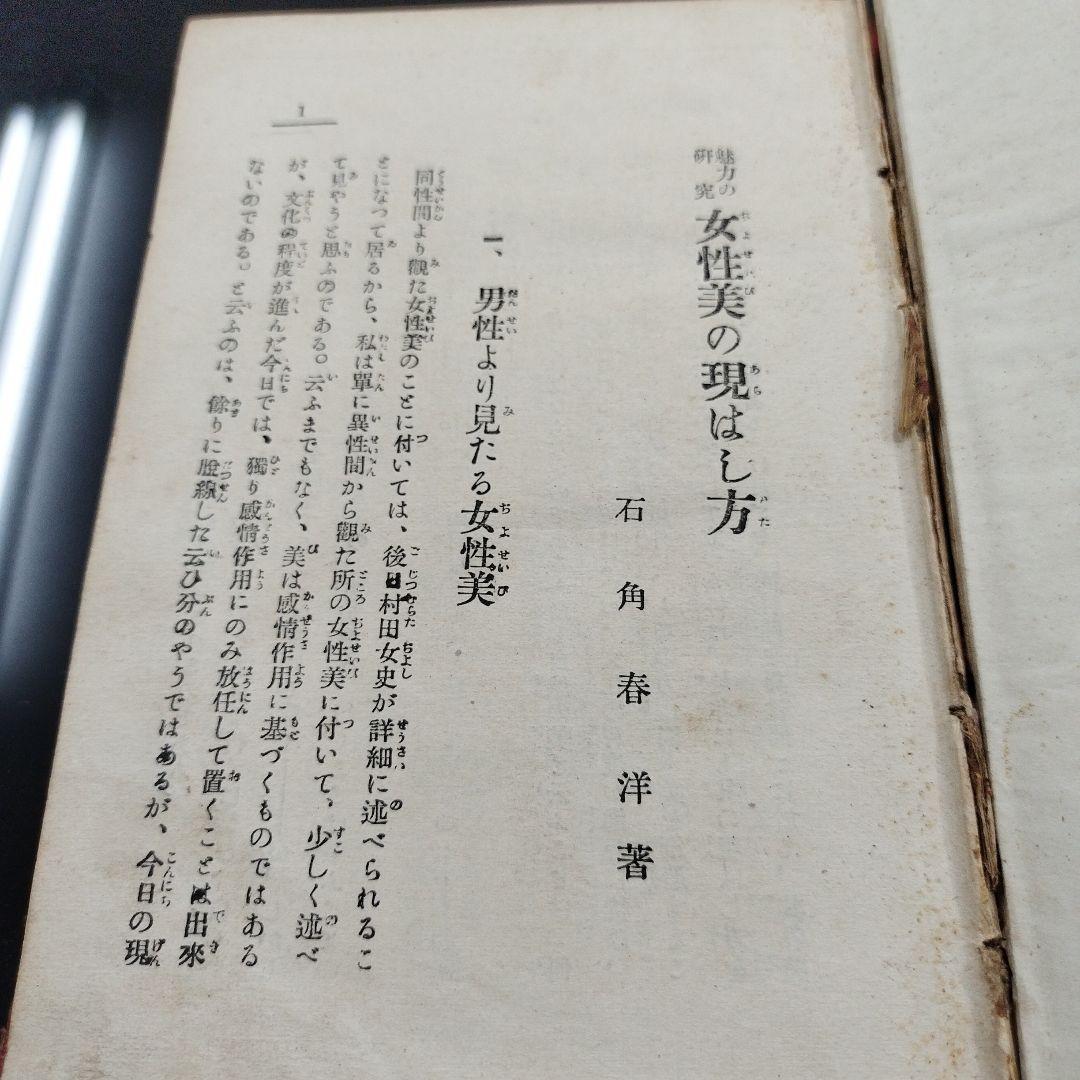 魅力の研究 女性美の現はし方
石角春洋著
一、男性より見たる女性美
同性間より觀た女性美のことに付いては、後日村田女史が詳細に述べられるこ
とになつて居るから、私は單に異性間から觀た所の女性美に付いて、少しく述べ
て見やうと思ふのである。云ふまでもなく、美は感情作用に基づくものではある
が、文化の程度が進んだ今日では、獨り感情作用にのみ放任して置くことは出來
ないのである。と云ふのは、餘りに脫線した云ひ分のやうではあるが、今日の現
1